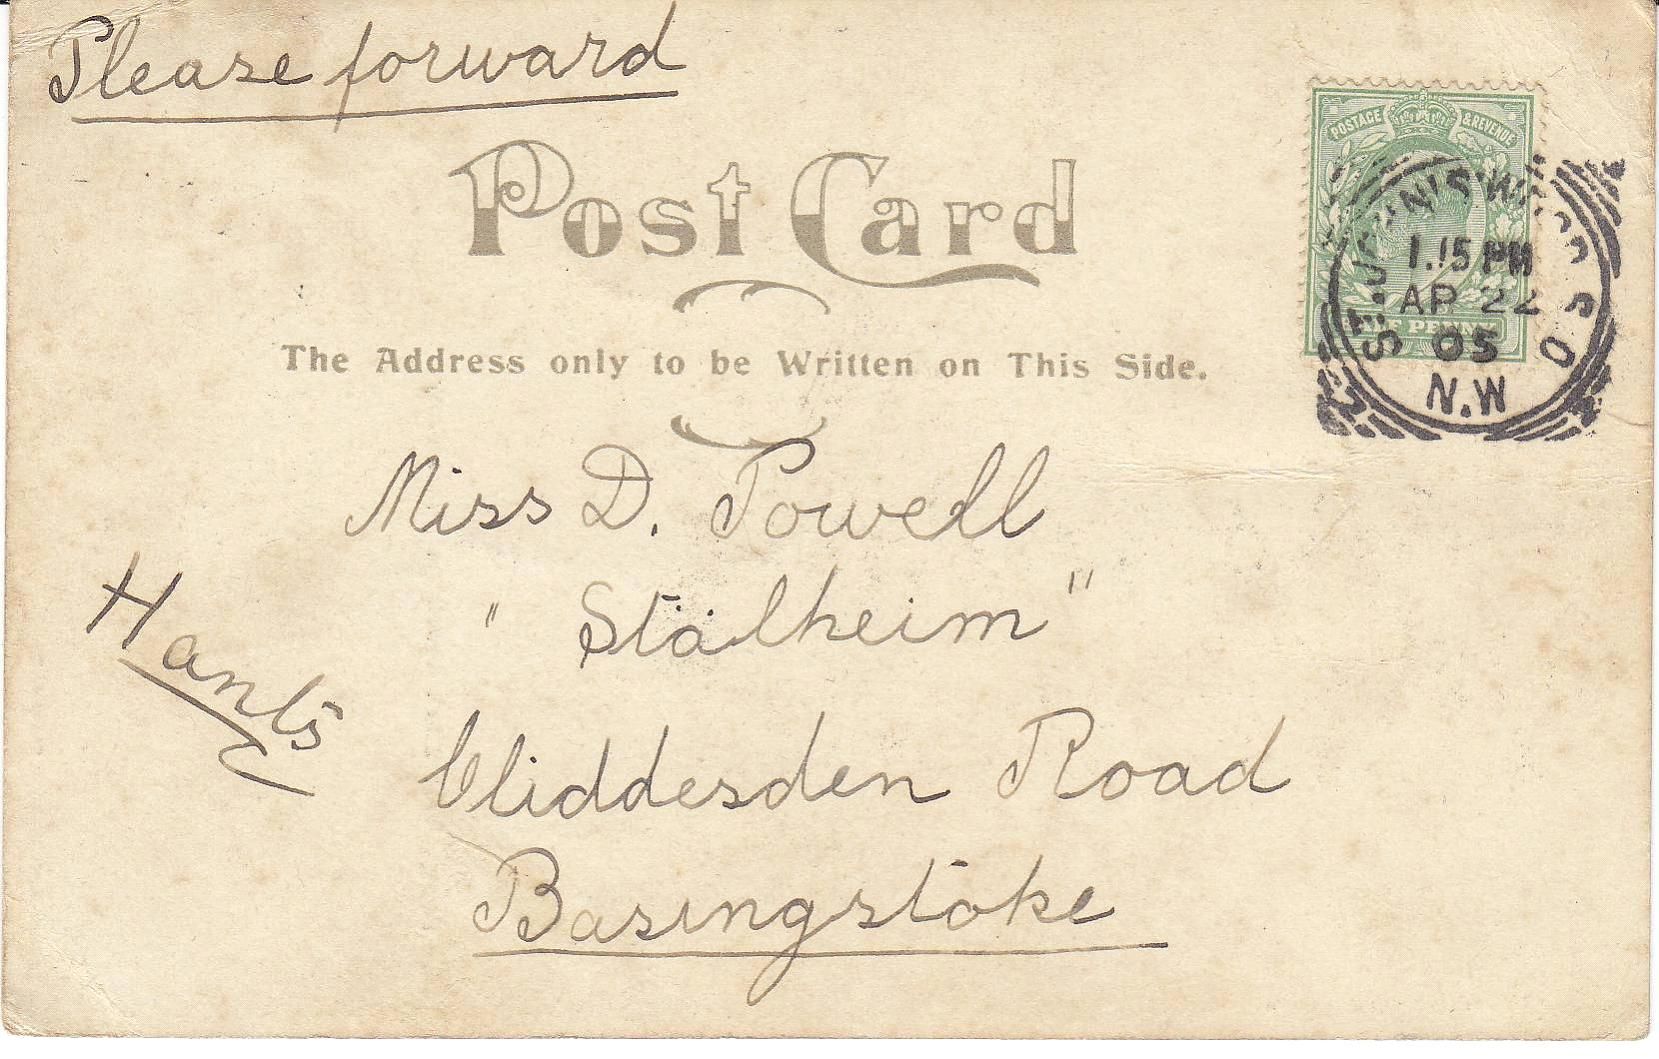 Please forward
POSTAGE & REVENUE
Post Card
1.15 PM
AP 22
05
N.W
The Address only to be Written on This Side.
Miss D. Powell
"Stalheim"
Cliddesden Road
Basingstoke
Hants